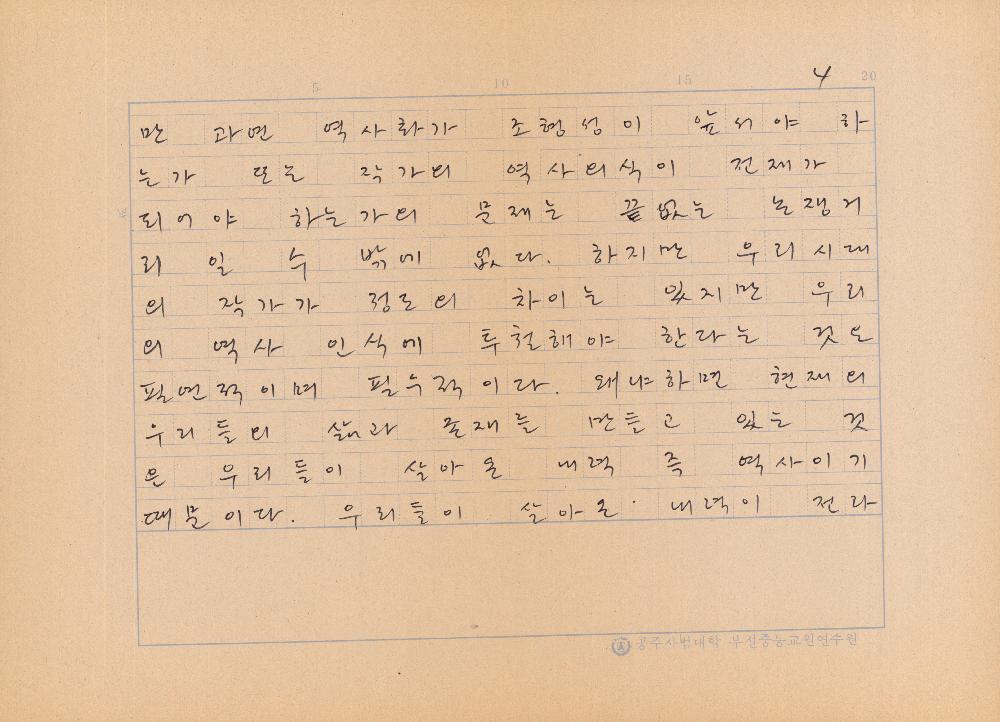 5 10 15 4 20
만 과연 역사화가 조형성이 앞서야 하
는가 또는 작가의 역사의식이 전제가
되어야 하는가의 문제는 끝없는 논쟁거
리일 수 밖에 없다. 하지만 우리시대
의 작가가 정도의 차이는 있지만 우리
의 역사 인식에 투철해야 한다는 것은
필연적이며 필수적이다. 왜냐하면 현재의
우리들의 삶과 존재를 만들고 있는 것
은 우리들이 살아온 내력 즉 역사이기
때문이다. 우리들이 살아온 내력이 전라
공주사범대학 부설중등교원연수원